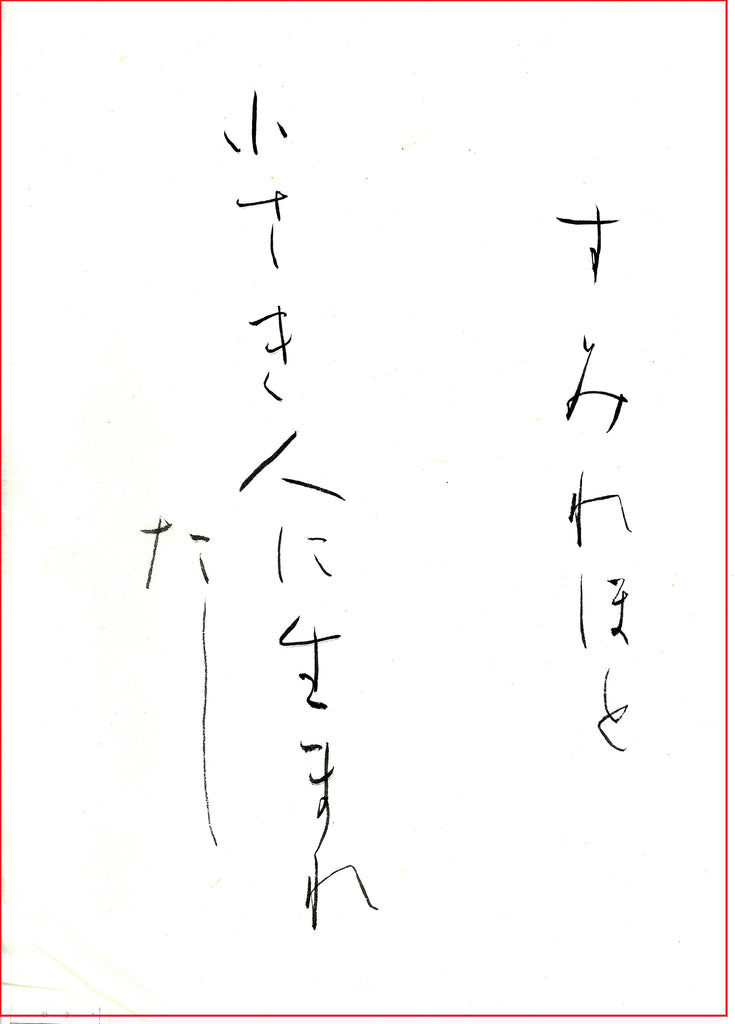 すみれほと
小さき人に生まれ
たし